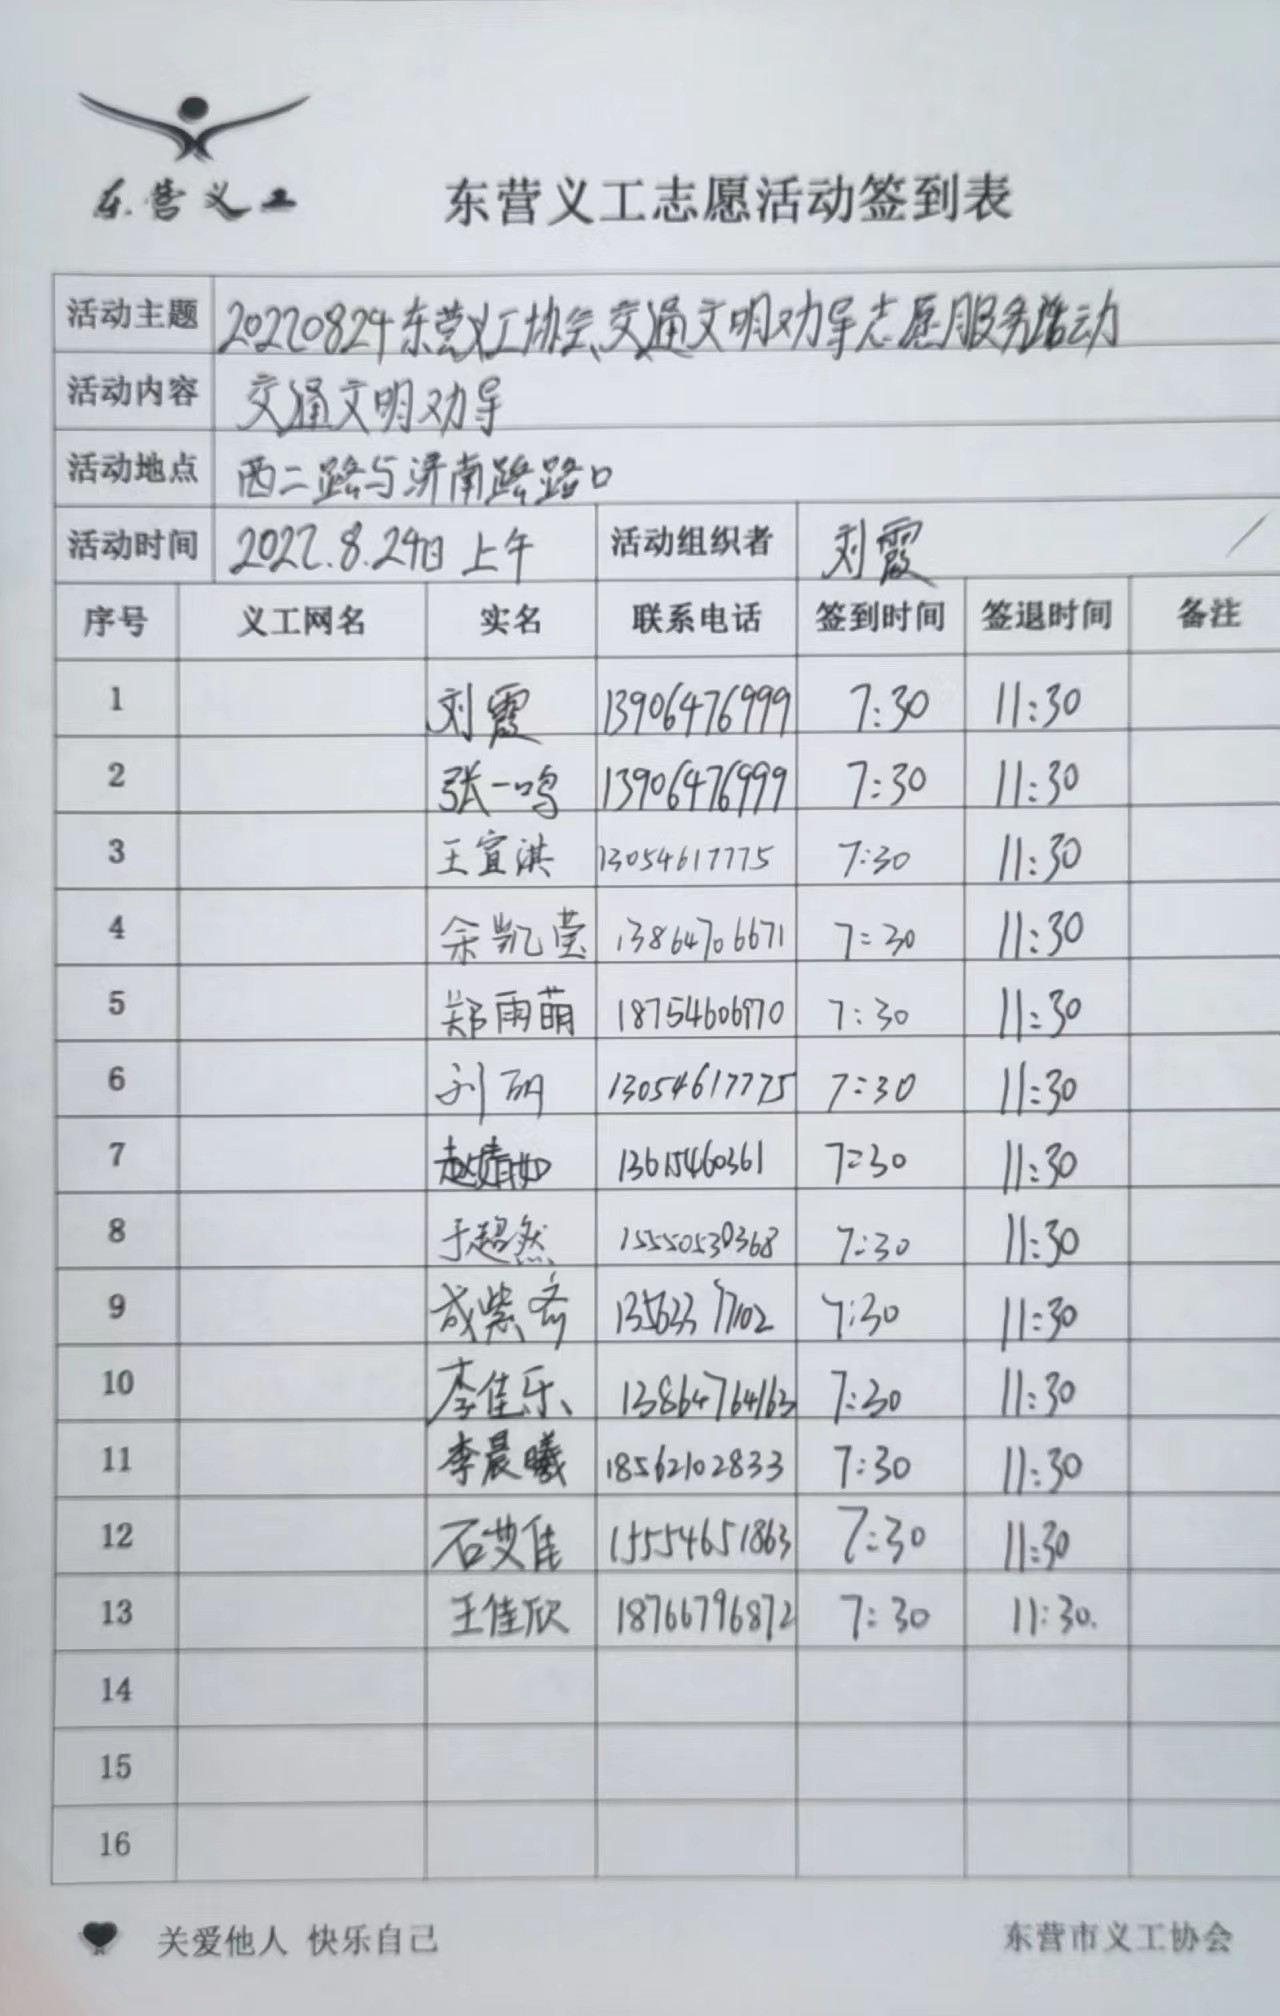 东营义工
东营义工志愿活动签到表
活动主题 20220824东营义工协会交通文明劝导志愿服务活动
活动内容 交通文明劝导
活动地点 西二路与济南路路口
活动时间 2022.8.24日 上午 活动组织者 刘霞
序号 义工网名 实名 联系电话 签到时间 签退时间 备注
1 刘霞 13906476999 7:30 11:30
2 张一鸣 13906476999 7:30 11:30
3 王宜淇 13054617775 7:30 11:30
4 余凯莹 13864706671 7:30 11:30
5 郑雨萌 18754606970 7:30 11:30
6 刘丽 13054617775 7:30 11:30
7 赵婧如 13615460361 7:30 11:30
8 于超然 15550530368 7:30 11:30
9 成紫 7:30 11:30
10 李佳乐 13864764163 7:30 11:30
11 李晨曦 18562102833 7:30 11:30
12 石艾佳 15554651863 7:30 11:30
13 王佳欣 18766796872 7:30 11:30.
14
15
16
关爱他人 快乐自己 东营市义工协会